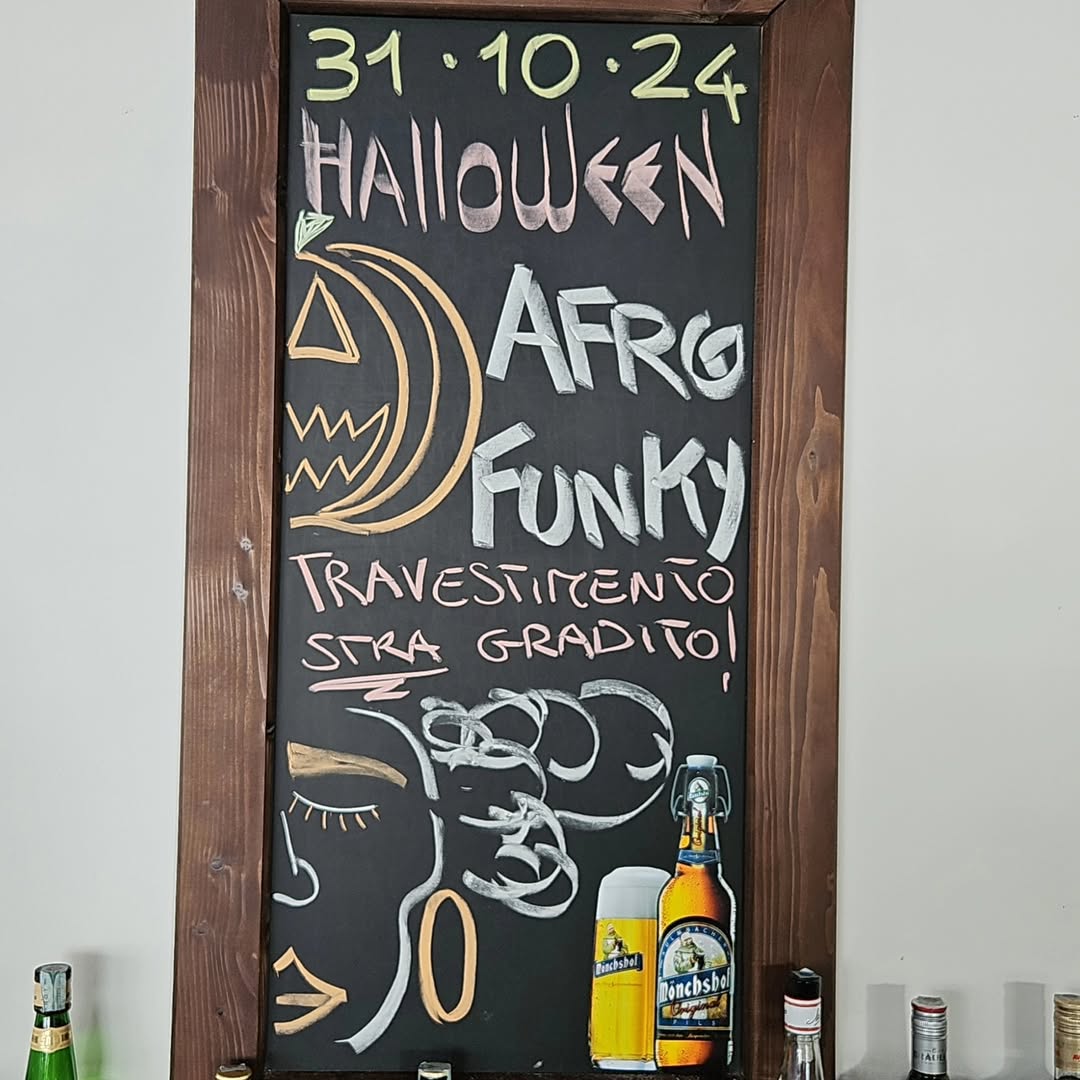 31·10·24
HALLOWEEN
AFRO
FUNKY
TRAVESTIMENTO
STRA GRADITO!
Mönchshof
Mönchshof
Original
PILS